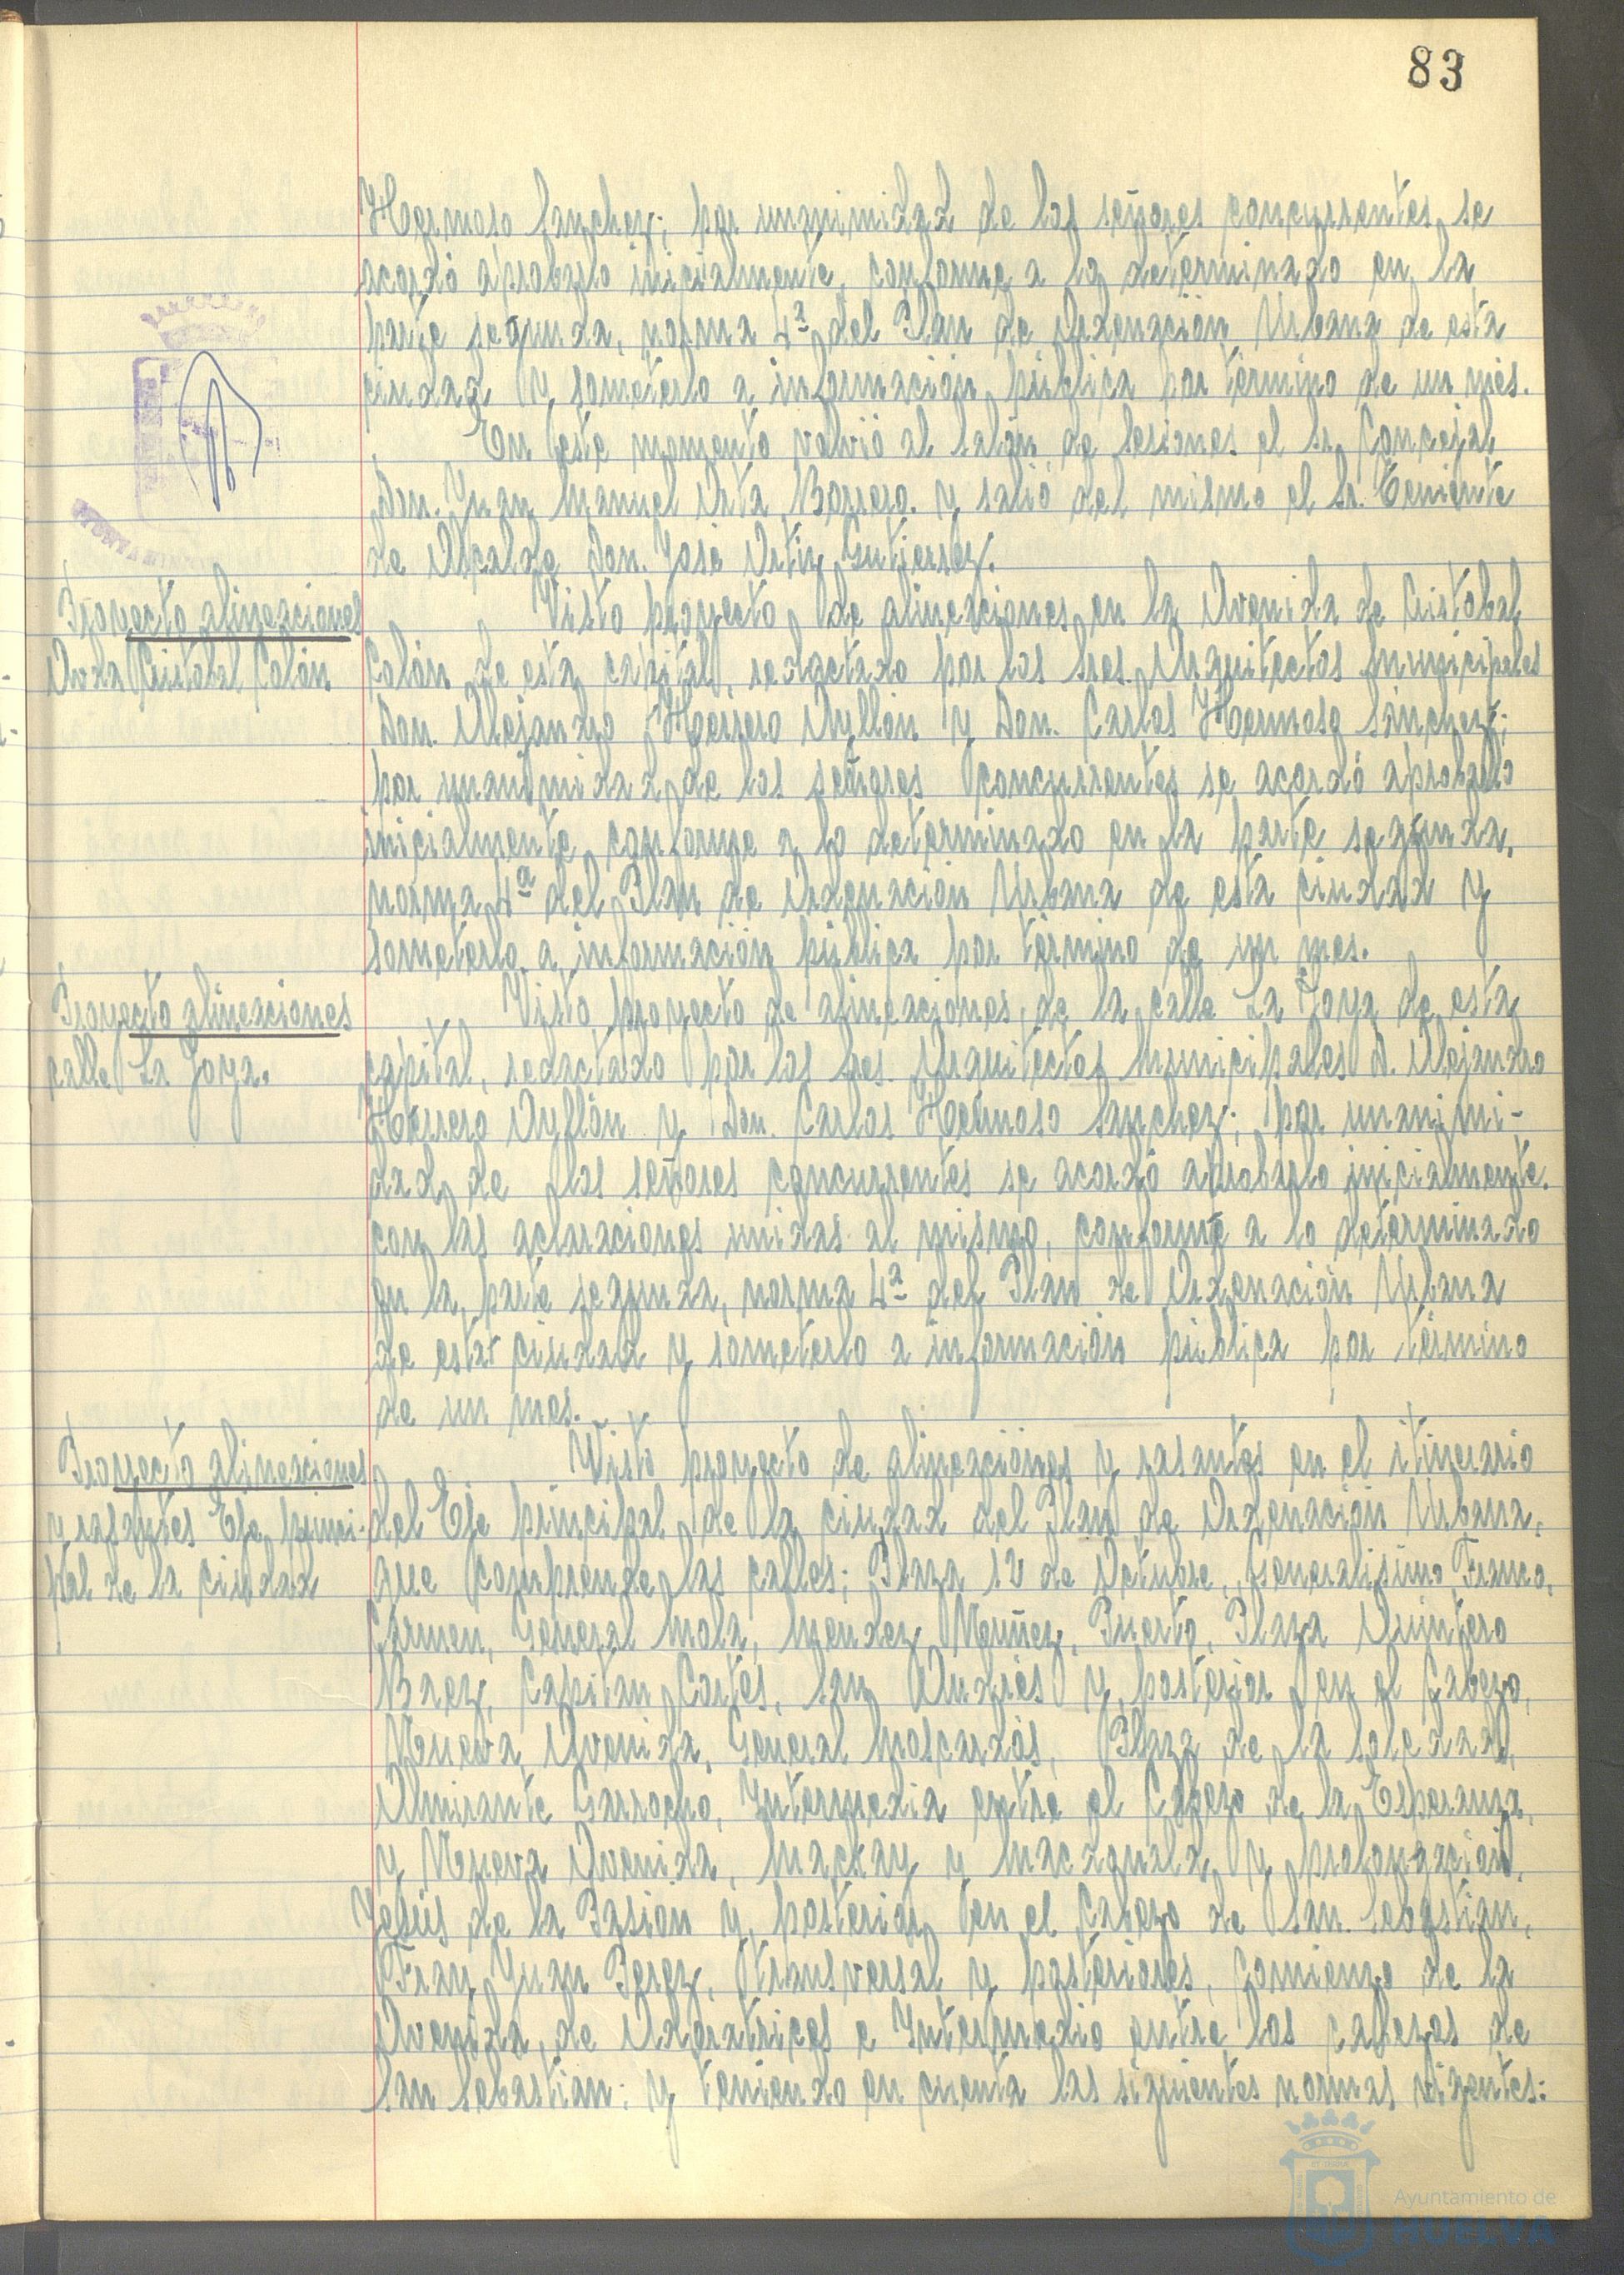 83
Hermoso Sanchez; por unanimidad de los señores concurrentes se
acordó aprobarlo inicialmente, conforme a lo determinado en la
parte segunda, norma 4ª del Plan de Ordenación Urbana de esta
ciudad y someterlo a información pública por término de un mes.
En este momento volvió al salón de sesiones el Sr. Concejal
Don. Juan Manuel Orta Borrero. y salió del mismo el Sr. Teniente
de Alcalde Don. José Ortiz Gutierrez.
Proyecto alineaciones
Avda Cristobal Colón
Visto proyecto de alineaciones en la Avenida de Cristobal
Colón de esta capital, redactado por los Sres. Arquitectos Municipales
Don. Alejandro Herrero Ayllón y Don. Carlos Hermoso Sánchez;
por unanimidad de los señores concurrentes se acordó aprobarlo
inicialmente conforme a lo determinado en la parte segunda,
norma 4ª del Plan de Ordenación Urbana de esta ciudad y
someterlo a información pública por término de un mes.
Proyecto alineaciones
calle La Joya.
Visto proyecto de alineaciones, de la calle La Joya de esta
capital, redactado por los Sres. Arquitectos Municipales D. Alejandro
Herrero Ayllón y Don. Carlos Hermoso Sanchez; por unanimi-
dad de los señores concurrentes se acordó aprobarlo inicialmente.
con las aclaraciones unidas al mismo, conforme a lo determinado
en la parte segunda, norma 4ª del Plan de Ordenación Urbana
de esta ciudad y someterlo a información pública por término
de un mes.
Proyecto alineaciones
y rasantes Eje princi-
pal de la ciudad
Visto proyecto de alineaciones y rasantes en el itinerario
del Eje principal de la ciudad del Plan de Ordenación Urbana,
que comprende las calles; Plaza 12 de Octubre, Generalisimo Franco,
Carmen, General Mola, Mendez Nuñez, Puerto, Plaza Quintero
Baez, Capitan Cortés, San Andrés y posterior en el Cabezo,
Nueva Avenida, General Moscardós, Plaza de la Soledad,
Almirante Garrocho, Intermedia entre el Cabezo de la Esperanza,
y Nueva Avenida, Mackay y Macdonald y prolongación,
Jesús de la Pasión y posterior en el Cabezo de San Sebastian,
Fray Juan Perez, transversal y posteriores, Comienzo de la
Avenida de Adoratrices e Intermedio entre los cabezos de
San Sebastian; y teniendo en cuenta las siguientes normas vigentes:
Ayuntamiento de
HUELVA